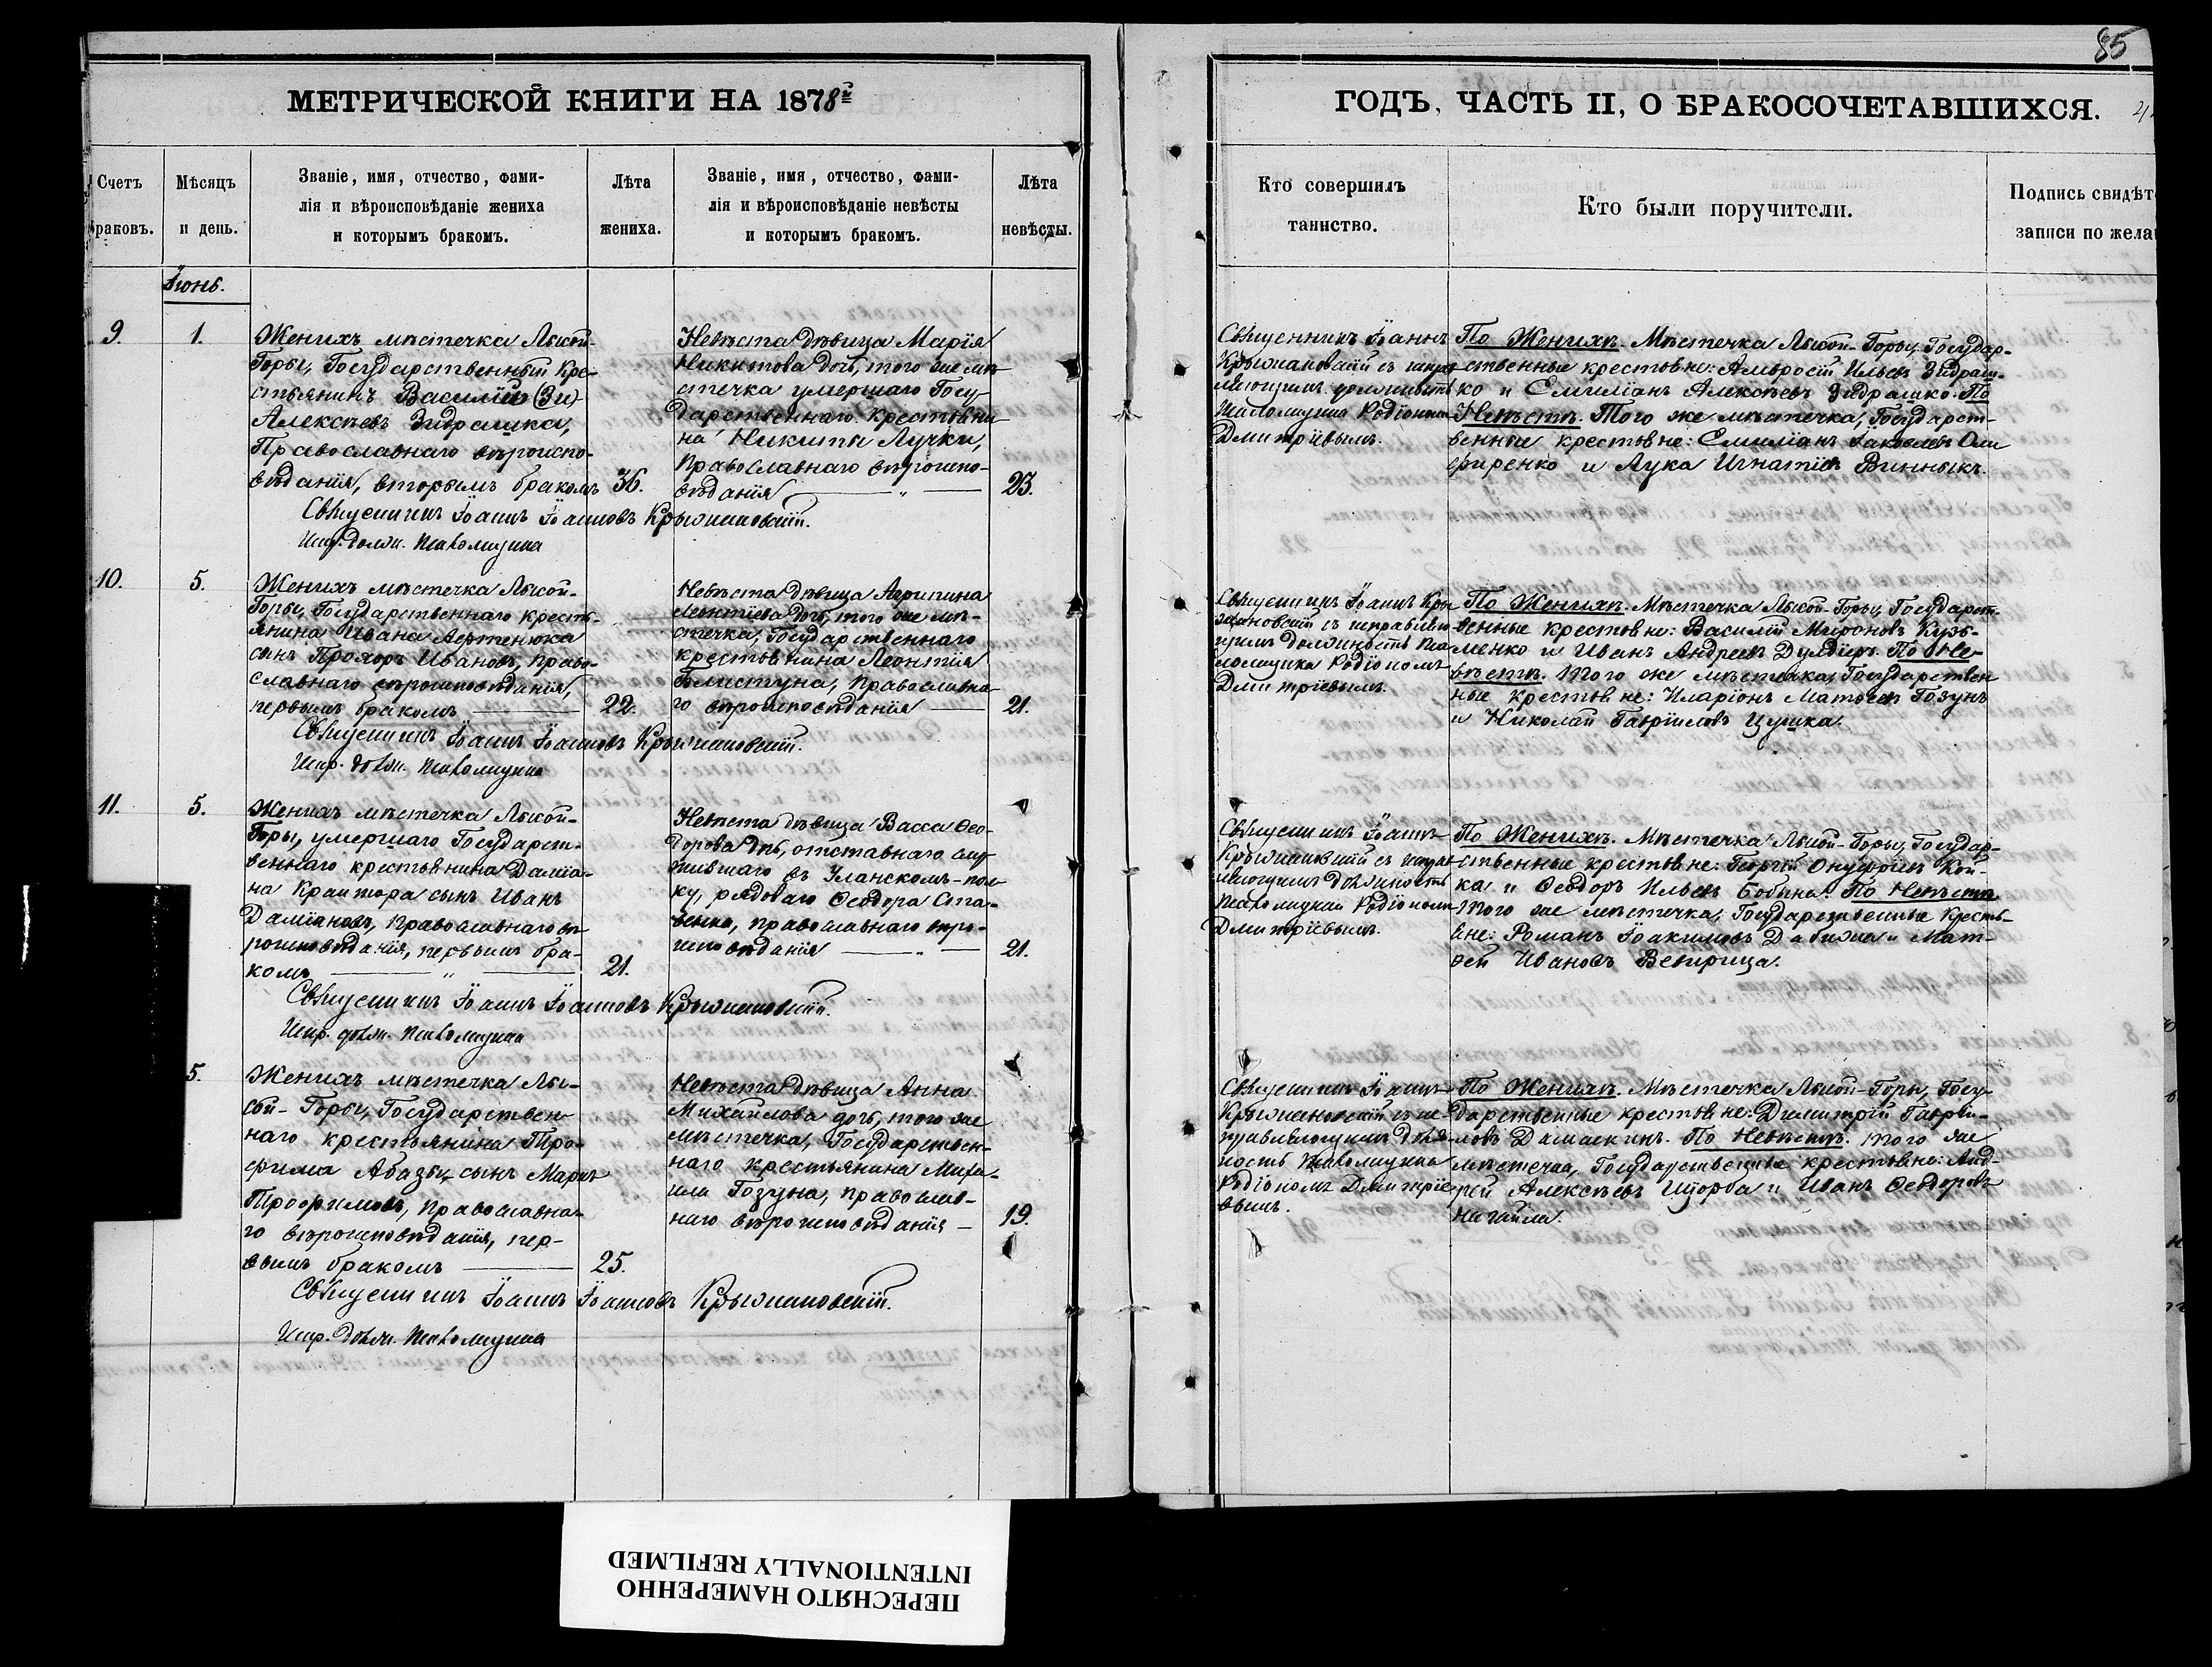 85
МЕТРИЧЕСКОЙ КНИГИ НА 1878й
ГОДЪ, ЧАСТЬ II, О БРАКОСОЧЕТАВШИХСЯ.
Счетъ
браковъ.
Мѣсяцъ
и день.
Званіе, имя, отчество, фами-
лія и вѣроисповѣданіе жениха
и которымъ бракомъ.
Лѣта
жениха.
Званіе, имя, отчество, фами-
лія и вѣроисповѣданіе невѣсты
и которымъ бракомъ.
Лѣта
невѣсты.
Кто совершилъ
таинство.
Кто были поручители.
Подпись свидѣт
записи по жела
Іюнь.
9.
1.
Женихъ мѣстечка Лысой-
Горы, Государственный Кре-
стьянинъ Василій (Зи)
Алексѣевъ Зидрашко,
Православнаго вѣроиспо-
вѣданія, вторымъ бракомъ
36.
Невѣста дѣвица Марія
Никитова дочь, того же мѣ-
стечка умершаго Госу-
дарственнаго крестьяни-
на Никиты Лучки,
Православнаго вѣроиспо-
вѣданія
23.
Священникъ Іоаннъ Іоанновъ Крыжановскій.
Испр. долж. Псаломщика
Священникъ Іоаннъ
Крыжановскій съ исправ-
ляющимъ должность
Псаломщика Родіономъ
Дмитріевымъ.
По Женихѣ. Мѣстечка Лысой-Горы, Государ-
ственные крестьяне: Амвросій Ильевъ Зидраш-
ко и Емиліанъ Алексѣевъ Зидрашко. По
Невѣстѣ. Того же мѣстечка, Государст-
венные крестьяне: Емиліанъ Іаковлевъ Оли
ференко и Лука Игнатіевъ Винныкъ.
10.
5.
Женихъ мѣстечка Лысой-
Горы, Государственнаго кресть-
янина Ивана Лертенюка
сынъ Прохоръ Ивановъ, Право-
славнаго вѣроисповѣданія,
первымъ бракомъ
22.
Невѣста дѣвица Агрипина
Леонтіева дочь, того же мѣ-
стечка, Государственнаго
крестьянина Леонтія
Блистуна, Православна-
го вѣроисповѣданія
21.
Священникъ Іоаннъ Іоанновъ Крыжановскій.
Испр. долж. Псаломщика
Священникъ Іоаннъ Кры-
жановскій съ исправляю-
щимъ должность Пса-
ломщика Родіономъ
Дмитріевымъ.
По Женихѣ. Мѣстечка Лысой-Горы, Государст-
венные крестьяне: Василій Мироновъ Кузь-
менко и Иванъ Андреевъ Дулдіеръ. По Не-
вѣстѣ. Того же мѣстечка, Государствен
ные крестьяне: Иларіонъ Матѳеевъ Гозунъ
и Николай Гавріиловъ Цушка.
11.
5.
Женихъ мѣстечка Лысой-
Горы, умершаго Государст-
веннаго крестьянина Даміа-
на Крантора сынъ Иванъ
Даміановъ, Православнаго вѣ-
роисповѣданія, первымъ бра-
комъ
21.
Невѣста дѣвица Васса Ѳео-
дорова дочь, отставнаго слу-
жившаго въ Уланскомъ-пол-
ку, рядоваго Ѳеодора Ста-
венко, православнаго вѣро-
исповѣданія
21.
Священникъ Іоаннъ Іоанновъ Крыжановскій.
Испр. долж. Псаломщика
Священникъ Іоаннъ
Крыжановскій съ исправ-
ляющимъ должность
Псаломщика Родіономъ
Дмитріевымъ.
По Женихѣ. Мѣстечка Лысой-Горы, Государ-
ственные крестьяне: Георгій Онуфріевъ Кой-
ка и Ѳеодоръ Ильевъ Бобына. По Невѣстѣ
Того же мѣстечка, Государственные Кресть-
яне: Романъ Іоакимовъ Дабижа и Мат-
ѳей Ивановъ Веверица.
5.
Женихъ мѣстечка Лы-
сой-Горы, Государствен-
наго крестьянина Тро-
фима Абазы, сынъ Маркъ
Трофимовъ, Православна-
го вѣроисповѣданія, пер-
вымъ бракомъ
25.
Невѣста дѣвица Анна
Михайлова дочь, того же
мѣстечка, Государствен-
наго крестьянина Миха-
ила Гозуна, православ-
наго вѣроисповѣданія
19.
Священникъ Іоаннъ Іоанновъ Крыжановскій.
Испр. долж. Псаломщика
Священникъ Іоаннъ
Крыжановскій съ ис-
правляющимъ долж-
ность Псаломщика
Родіономъ Дмитріе-
вымъ.
По Женихѣ. Мѣстечка Лысой-Горы, Госу-
дарственные крестьяне: Димитрій Гаврі-
ловъ Дамаскинъ. По Невѣстѣ. Того же
мѣстечка, Государственные крестьяне: Анд-
рей Алексѣевъ Щорба и Иванъ Ѳеодоровъ
Нагайла.
ПЕРЕСНЯТО НАМЕРЕННО
INTENTIONALLY REFILMED